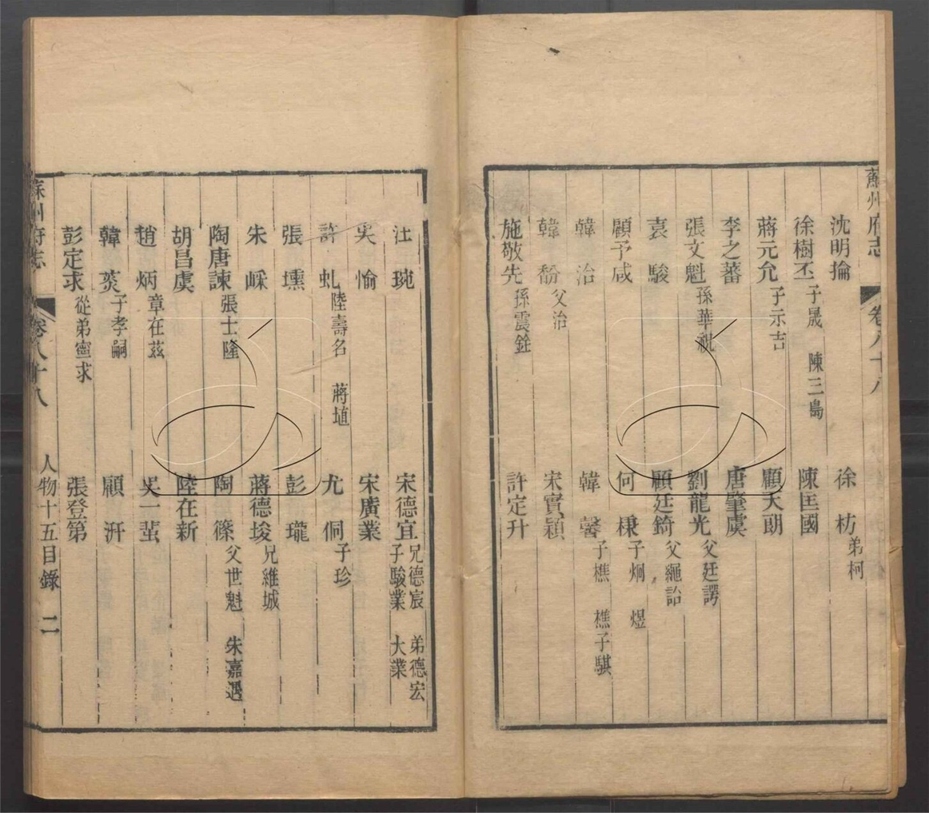 蘇州府志 卷八十八
沈明掄 徐枋 弟柯
徐樹丕 子晟 陳三島 陳匡國
蔣元允 子示吉 顧天朗
李之蕃 唐肇虞
張文魁 孫華 劉龍光 父廷諤
袁駿 顧廷錡 父繩詒
顧予咸 何棅 子炯 煜
韓治 韓馨 子樵 樵子騏
韓馚 父治 宋實穎
施敬先 孫震銓 許定升
汪琬 宋德宜 兄德宸 弟德宏 子駿業 大業
吳愉 宋廣業
許虬 陸壽名 蔣埴 尤侗 子珍
張壎 彭瓏
朱嵘 蔣德埈 兄維城
陶唐諫 張士隆 陶篠 父世魁 朱嘉遇
胡昌虞 陸在新
趙炳 章在茲 吳一蜚
韓菼 子孝嗣 顧汧
彭定求 從弟寧求 張登第
蘇州府志 卷八十八 人物十五目錄 二